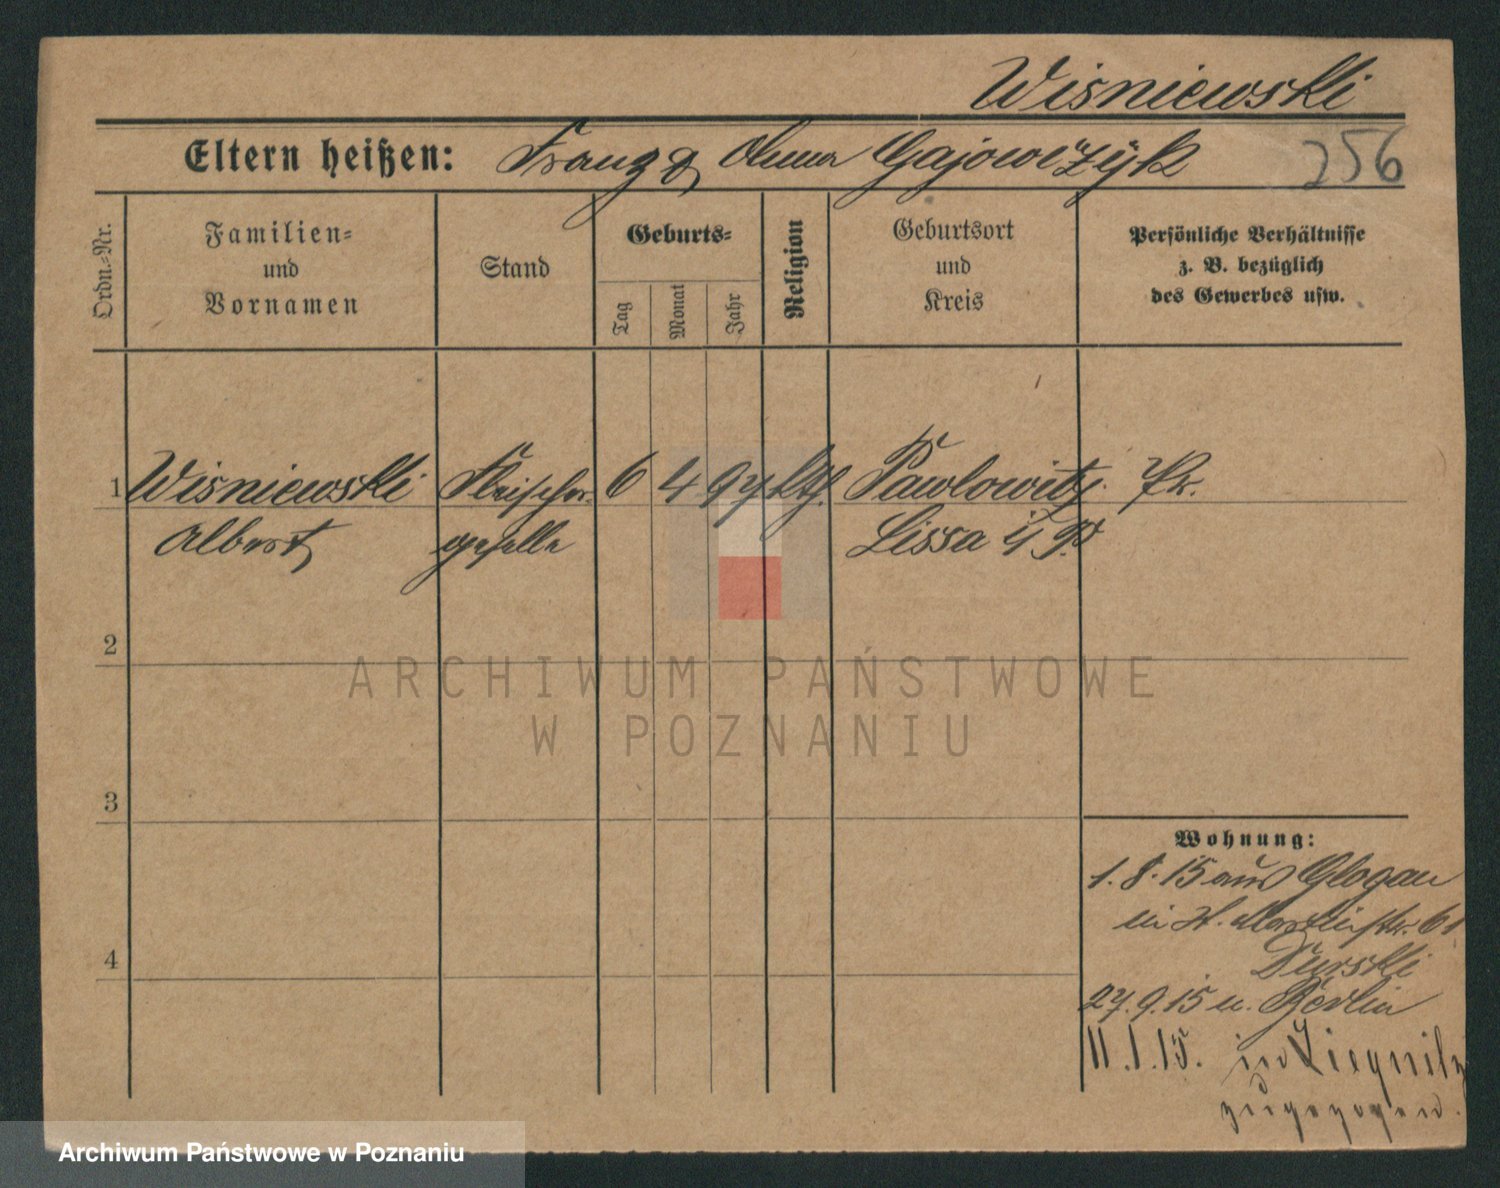 Wisniewski
Eltern heißen: Franz u. Anna Gajowiżÿk 256
Ordn.-Nr.
Familien-
und
Vornamen
Stand
Geburts-
Tag
Monat
Jahr
Religion
Geburtsort
und
Kreis
Persönliche Verhältnisse
z. B. bezüglich
des Gewerbes usw.
1 Wisniewski Fleischer- 6 4 97 kth. Pawlowitz. Pr.
Albert geselle Lissa i/P.
2
3
4
Wohnung:
1. 8. 15 aus Glogau
in St. Martinstr. 61
Durski
27. 9. 15 n. Berlin
11. 1. 15. in Liegnitz
zugezogen.
ARCHIWUM PAŃSTWOWE
W POZNANIU
Archiwum Państwowe w Poznaniu